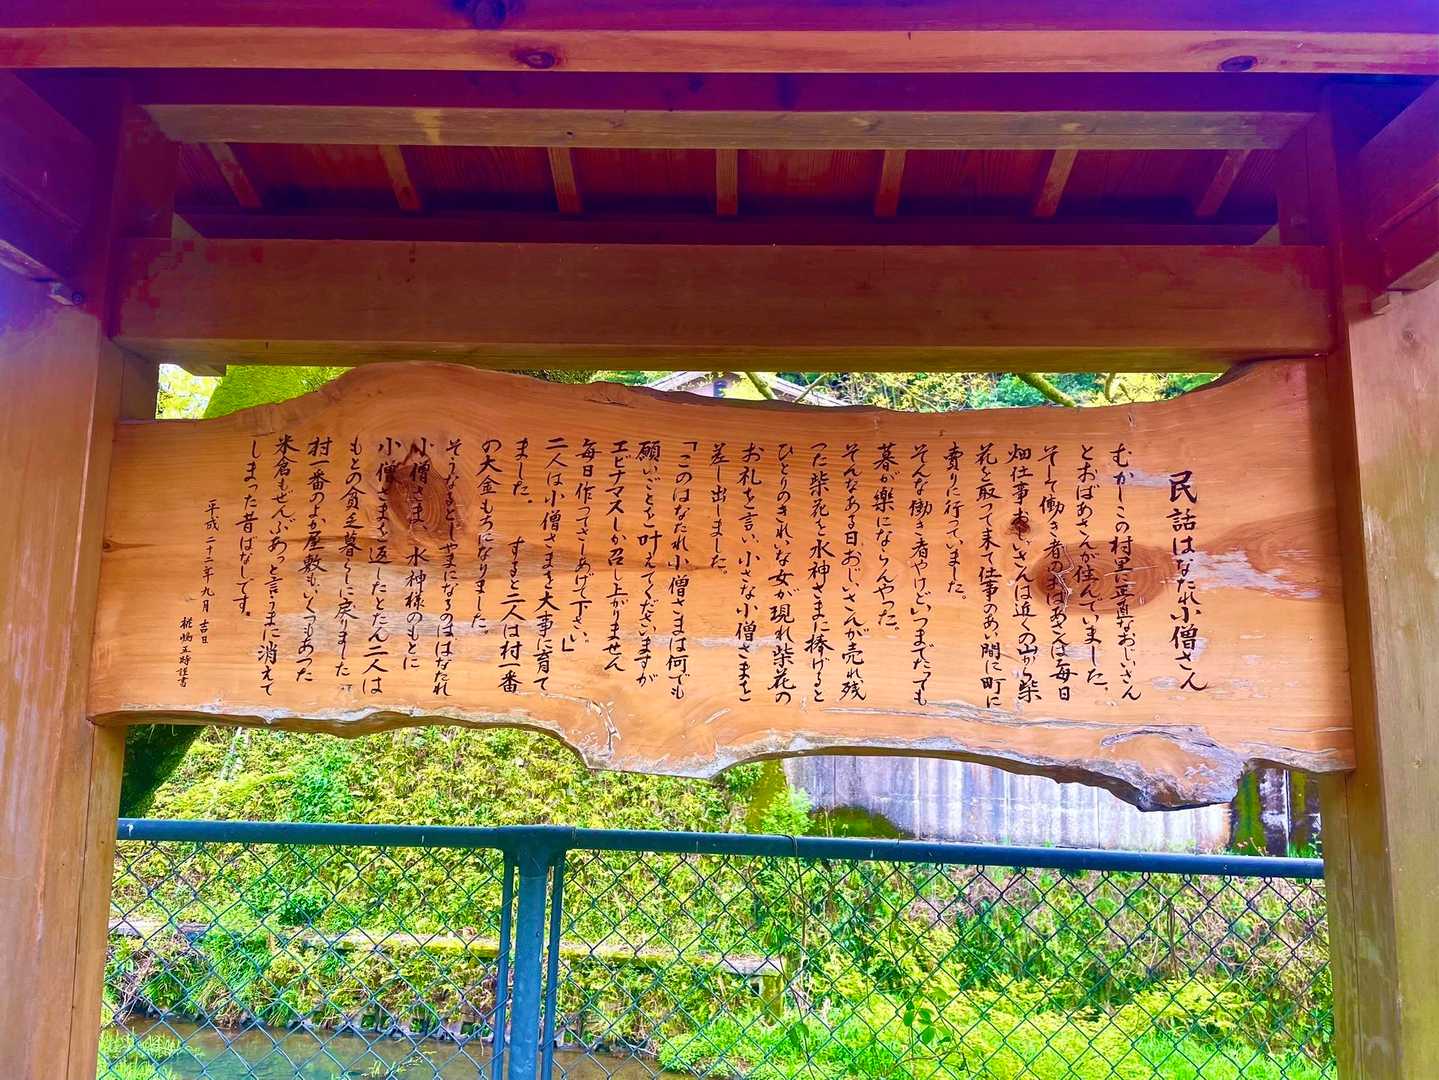 民話はなたれ小僧さん
むかしこの村里に正直なおじいさん
とおばあさんが住んでいました。
そして働き者のおばあさんは毎日
畑仕事おじいさんは近くの山から柴
花を取って来て仕事のあい間に町に
売りに行っていました。
そんな働き者やけどいつまでたっても
暮が楽にならんやった。
そんなある日おじいさんが売れ残
った柴花を水神さまに捧げると
ひとりのきれいな女が現れ柴花の
お礼を言い、小さな小僧さまを
差し出しました。
「このはなたれ小僧さまは何でも
願いごとを叶えてくださいますが
エビナマスしか召し上がりません
毎日作ってさしあげて下さい。」
二人は小僧さまを大事に育て
ました。 すると二人は村一番
の大金もちになりました。
そうなるとじゃまになるのははなたれ
小僧さま、水神様のもとに
小僧さまを返したとたん二人は
もとの貧乏暮らしに戻りました
村一番のよか屋敷もいくつもあった
米倉もぜんぶあっと言うまに消えて
しまった昔ばなしです。
平成二十二年九月 吉日